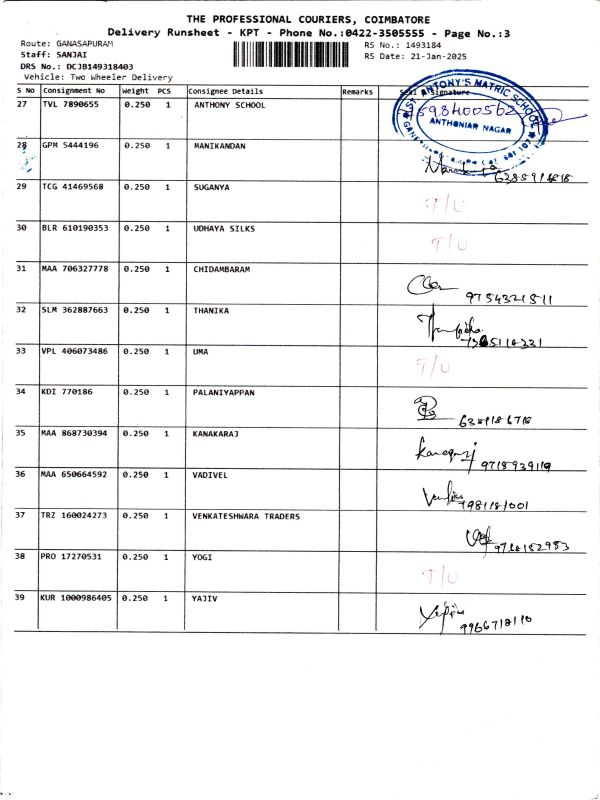 THE PROFESSIONAL COURIERS, COIMBATORE
Delivery Runsheet - KPT - Phone No.:0422-3505555 - Page No.:3
Route: GANASAPURAM
RS No.: 1493184
Staff: SANJAI
RS Date: 21-Jan-2025
DRS No.: DCJB149318403
Vehicle: Two Wheeler Delivery
S No Consignment No Weight PCS Consignee Details Remarks Seal & Signature
27 TVL 7890655 0.250 1 ANTHONY SCHOOL
ST. ANTONY'S MATRIC SCHOOL
ANTHONIAR NAGAR
28 GPM 5444196 0.250 1 MANIKANDAN
29 TCG 41469568 0.250 1 SUGANYA T/U
30 BLR 610190353 0.250 1 UDHAYA SILKS T/U
31 MAA 706327778 0.250 1 CHIDAMBARAM
9754321511
32 SLM 362887663 0.250 1 THANIKA
33 VPL 406073486 0.250 1 UMA T/U
34 KDI 770186 0.250 1 PALANIYAPPAN
35 MAA 868730394 0.250 1 KANAKARAJ
9718939119
36 MAA 650664592 0.250 1 VADIVEL
37 TRZ 160024273 0.250 1 VENKATESHWARA TRADERS
38 PRO 17270531 0.250 1 YOGI T/U
39 KUR 1000986405 0.250 1 YAJIV
9966718110